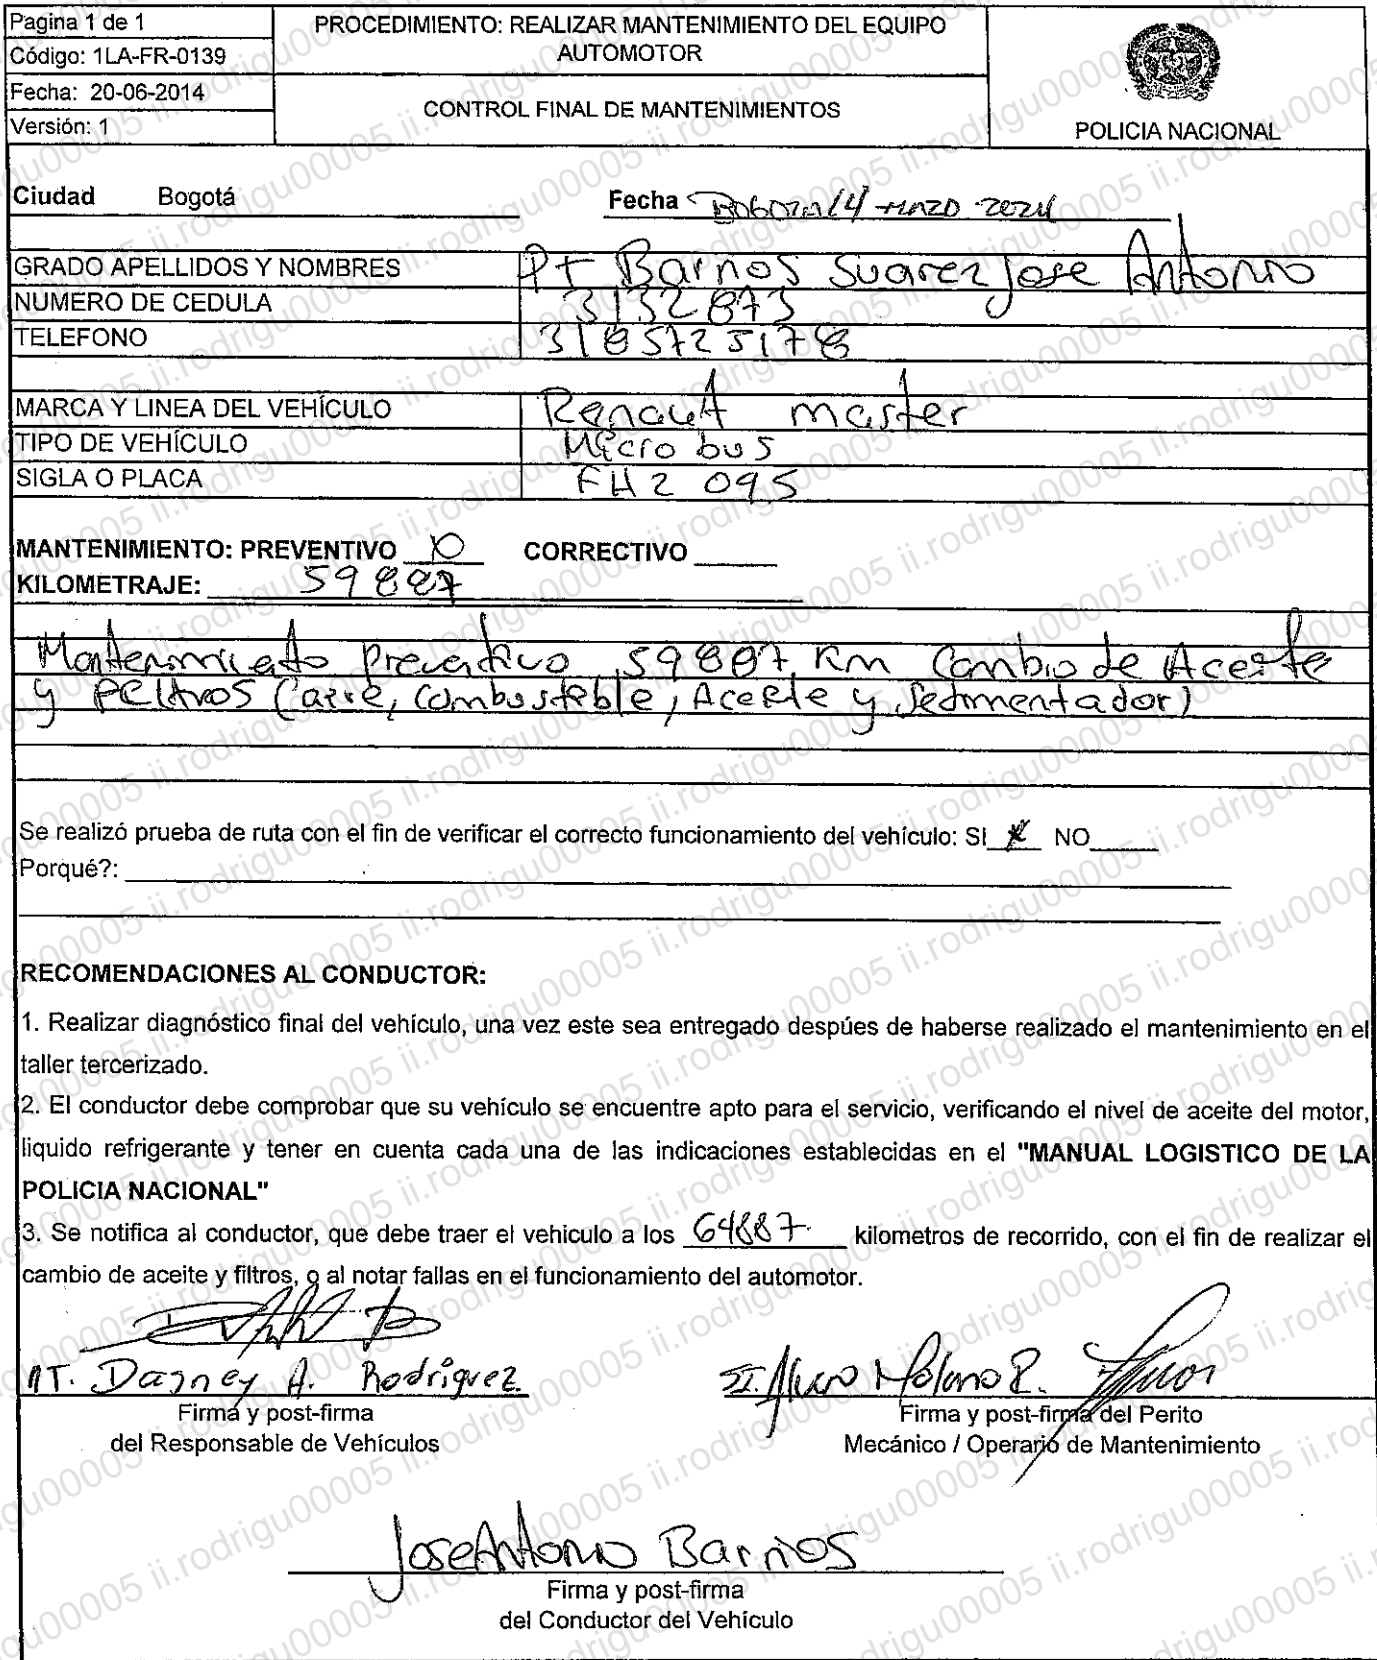 Pagina 1 de 1
Código: 1LA-FR-0139
Fecha: 20-06-2014
Versión: 1
PROCEDIMIENTO: REALIZAR MANTENIMIENTO DEL EQUIPO
AUTOMOTOR
CONTROL FINAL DE MANTENIMIENTOS
POLICIA NACIONAL
Ciudad Bogotá Fecha 14 2024
GRADO APELLIDOS Y NOMBRES PT Barrios Suarez Jose Antonio
NUMERO DE CEDULA 3132873
TELEFONO 3185725178
MARCA Y LINEA DEL VEHÍCULO Renault master
TIPO DE VEHÍCULO Micro bus
SIGLA O PLACA 095
MANTENIMIENTO: PREVENTIVO X CORRECTIVO
KILOMETRAJE: 59887
Mantenimiento Preventivo 59887 Km Cambio de Aceite
y Filtros (aire, combustible, Aceite y Sedimentador)
Se realizó prueba de ruta con el fin de verificar el correcto funcionamiento del vehículo: SI X NO
Porqué?:
RECOMENDACIONES AL CONDUCTOR:
1. Realizar diagnóstico final del vehículo, una vez este sea entregado despúes de haberse realizado el mantenimiento en el
taller tercerizado.
2. El conductor debe comprobar que su vehículo se encuentre apto para el servicio, verificando el nivel de aceite del motor,
liquido refrigerante y tener en cuenta cada una de las indicaciones establecidas en el "MANUAL LOGISTICO DE LA
POLICIA NACIONAL"
3. Se notifica al conductor, que debe traer el vehiculo a los 64887 kilometros de recorrido, con el fin de realizar el
cambio de aceite y filtros, o al notar fallas en el funcionamiento del automotor.
A. Rodríguez
Firma y post-firma
del Responsable de Vehículos
Molano R.
Firma y post-firma del Perito
Mecánico / Operario de Mantenimiento
Jose Antonio Barrios
Firma y post-firma
del Conductor del Vehículo
ii.rodrigu00005